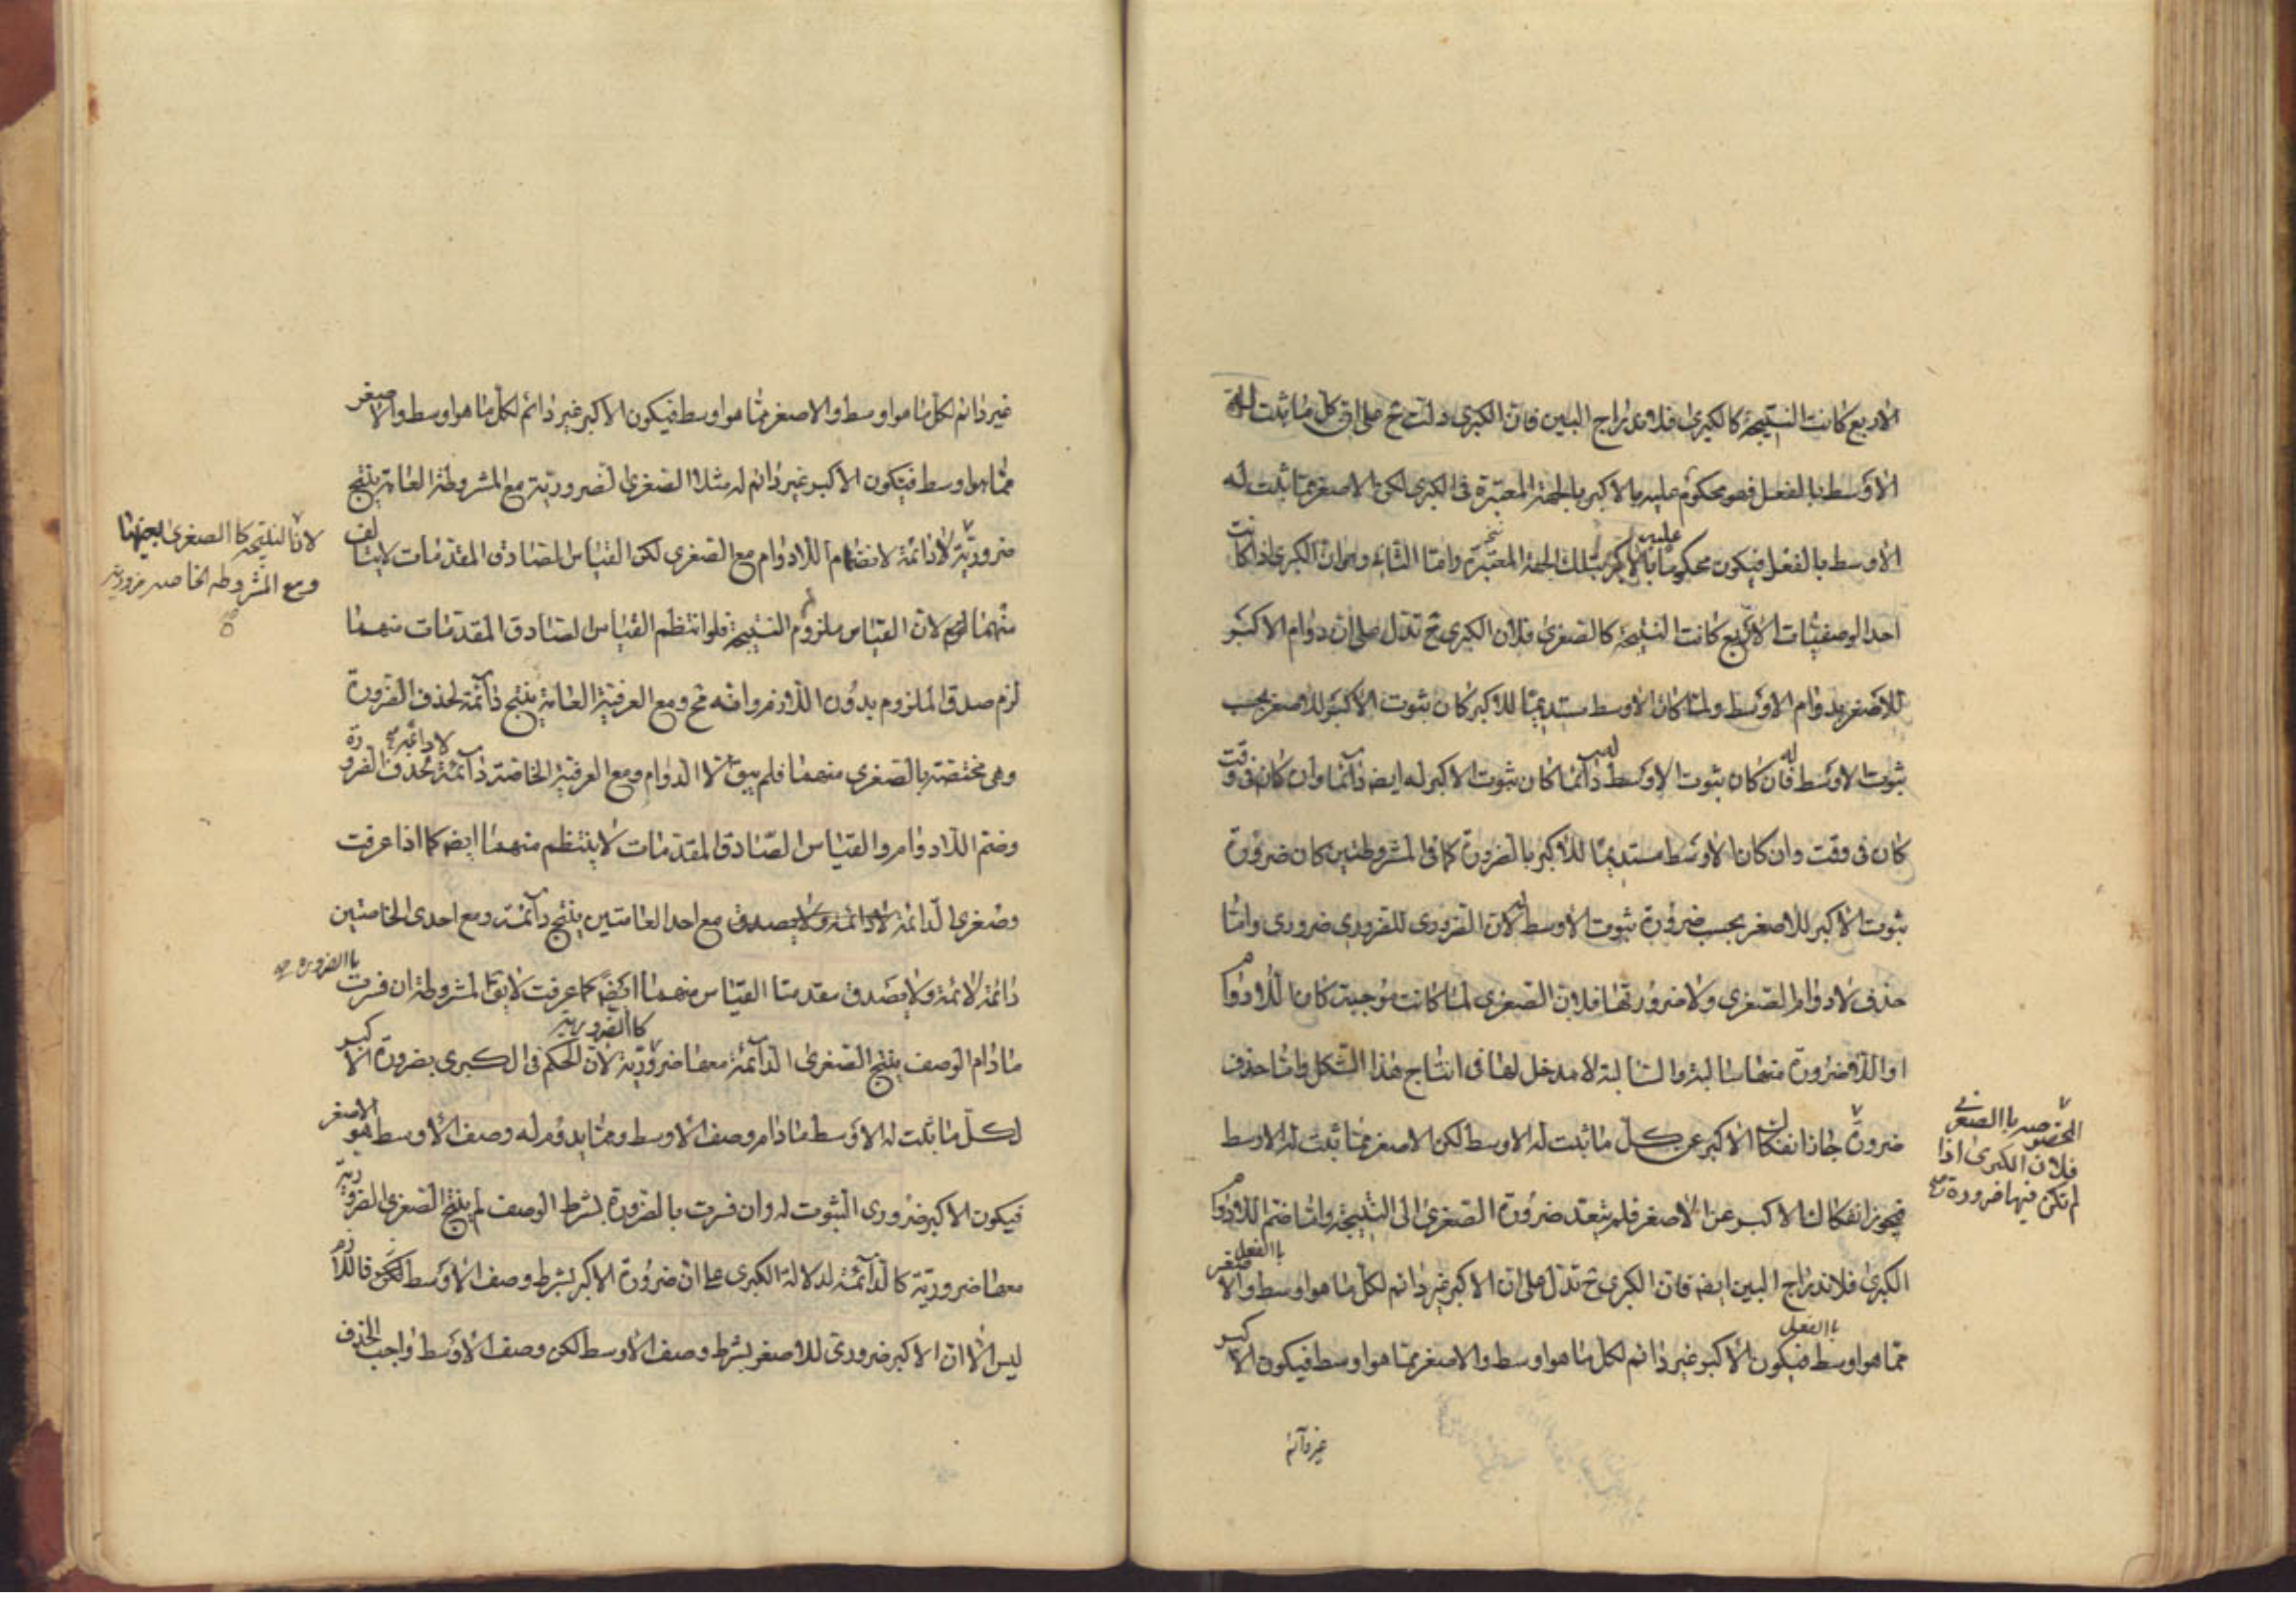 الاربع كانت النتيجة كالكبرى فللاندراج البين فان الكبرى دلت ح على ان كل ما ثبت له
الاوسط بالفعل فهو محكوم عليه بالاكبر بالجهة المعتبرة فى الكبرى لكن الاصغر مما ثبت له
الاوسط بالفعل فيكون محكوما عليه بالاكبر بتلك الجهة المعتبرة واما الثانى وهو ان الكبرى اذا كانت
احد الوصفيات الاربع كانت النتيجة كالصغرى فلان الكبرى ح تدل على ان دوام الاكبر
للاصغر بدوام الاوسط ولما كان الاوسط مستديما للاكبر كان ثبوت الاكبر للاصغر بحسب
ثبوت الاوسط له فان كان ثبوت الاوسط له دائما كان ثبوت الاكبر له ايضه دائما وان كان فى وقت
كان فى وقت وان كان الاوسط مستديما للاكبر بالضرورة كما فى المشروطتين كان ضرورة
ثبوت الاكبر للاصغر بحسب ضرورة ثبوت الاوسط له لان الضرورى للضرورى ضرورى واما
حذف لادوام الصغرى ولاضرورتها فلان الصغرى لما كانت موجبة كان اللادوام
او اللاضرورة منها سالبة والسالبة لا مدخل لها فى انتاج هذا الشكل واما حذف
ضرورة جاز انفكاك الاكبر عن كل ما ثبت له الاوسط لكن الاصغر مما ثبت له الاوسط
المخصوصة باالصغرى
فلان الكبرى اذا
لم تكن فيها ضرورة صح
فيجوز انفكاك الاكبر عن الاصغر فلم يتعد ضرورة الصغرى الى النتيجة واما ضم اللادوام
الكبرى فللاندراج البين ايضه فان الكبرى ح تدل على ان الاكبر غير دائم لكل ما هو اوسط باالفعل والاصغر
مما هو اوسط باالفعل فيكون الاكبر غير دائم لكل ما هو اوسط والاصغر مما هو اوسط فيكون الاكبر
غير دائم
غير دائم لكل ما هو اوسط والاصغر مما هو اوسط فيكون الاكبر غير دائم لكل ما هو اوسط والاصغر
مما هو اوسط فيكون الاكبر غير دائم له مثلا الصغرى الضرورية مع المشروطة العامة ينتج
ضرورية لادائمة لانضمام اللادوام مع الصغرى لكن القياس الصادق المقدمات لايتالف
لان النتيجة كا الصغرى بعينها
ومع المشروطه الخاصه ضرورية
صح
منهما لان القياس ملزوم النتيجة فلو انتظم القياس الصادق المقدمات منهما
لزم صدق الملزوم بدون اللازم وانه مح ومع العرفية العامة ينتج دائمة لحذف الضرورة
وهى مختصة بالصغرى منهما فلم يبق الا الدوام ومع العرفية الخاصة دائمة لادائمة لحذف الضرورة
وضم اللادوام والقياس الصادق المقدمات لا ينتظم منهما ايضه كما اذا عرفت
وصغرى الدائمة لادائمة ولايصدق مع احد العامتين ينتج دائمة ومع احدى الخاصتين
دائمة لائمة ولايصدق مقدمتا القياس منهما ايضه كما عرفت لايق المشروطة ان فسرت باالضرورة
ما دام الوصف ينتج الصغرى الدائمة معها ضرورية كاالضرورية لان الحكم فى الكبرى بضرورة الاكبر
لكل ما ثبت له الاوسط مادام وصف الاوسط ومما يدوم له وصف الاوسط هو الاصغر
فيكون الاكبر ضرورى الثبوت له وان فسرت بالضرورة بشرط الوصف لم ينتج الصغرى الضرورية
معها ضرورية كالدائمة لدلالة الكبرى على ان ضرورة الاكبر بشرط وصف الاوسط لكن فاللازم
ليس الا ان الاكبر ضرورى للاصغر بشرط وصف الاوسط لكن وصف الاوسط واجب الحذف